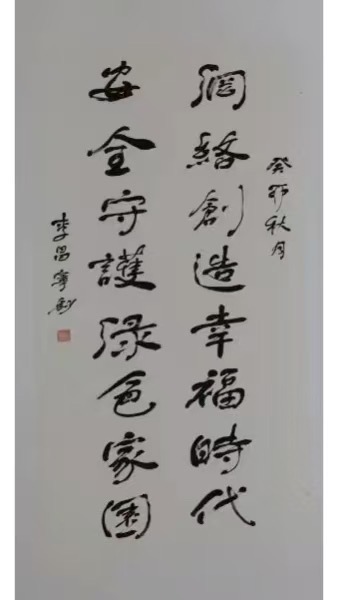 癸卯秋月
網絡創造幸福時代
安全守護綠色家園
李昌寧